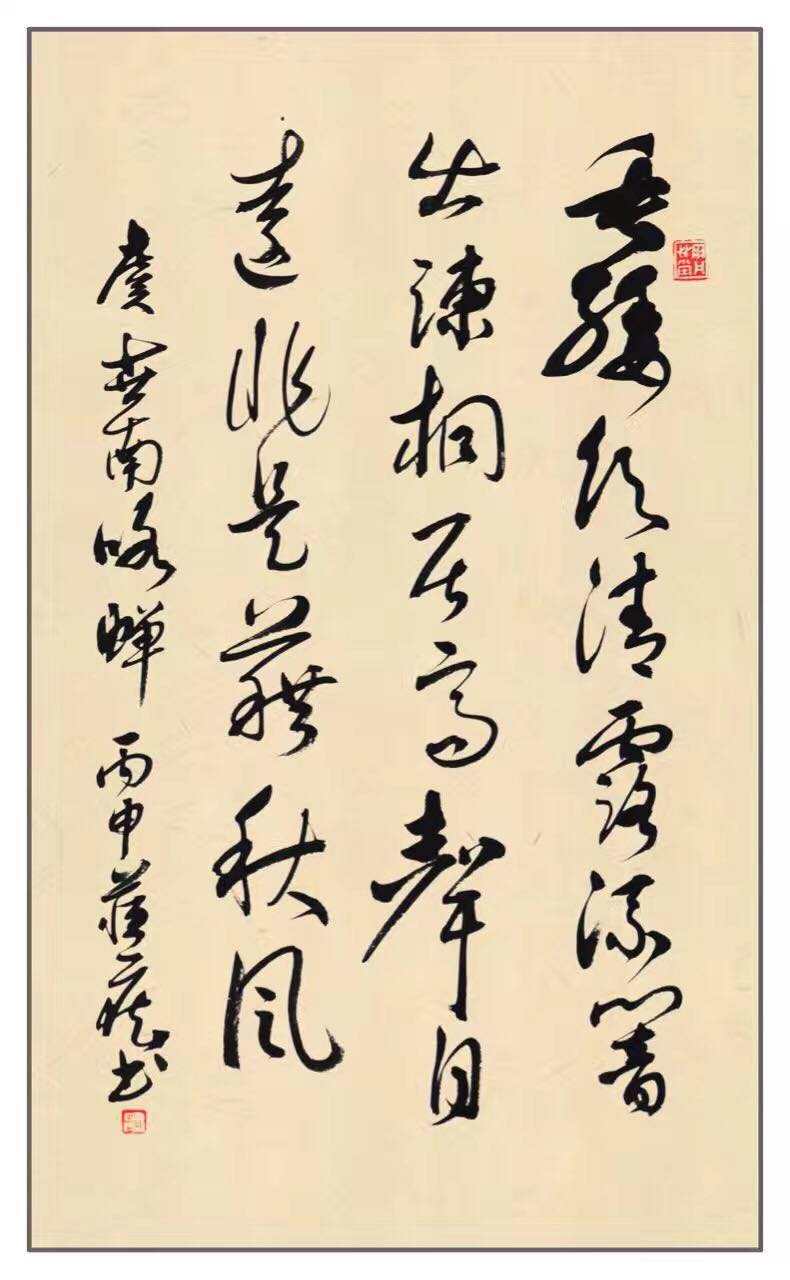 垂緌饮清露流響
出疎桐居高聲自
遠非是藉秋风
虞世南咏蝉 丙申 书